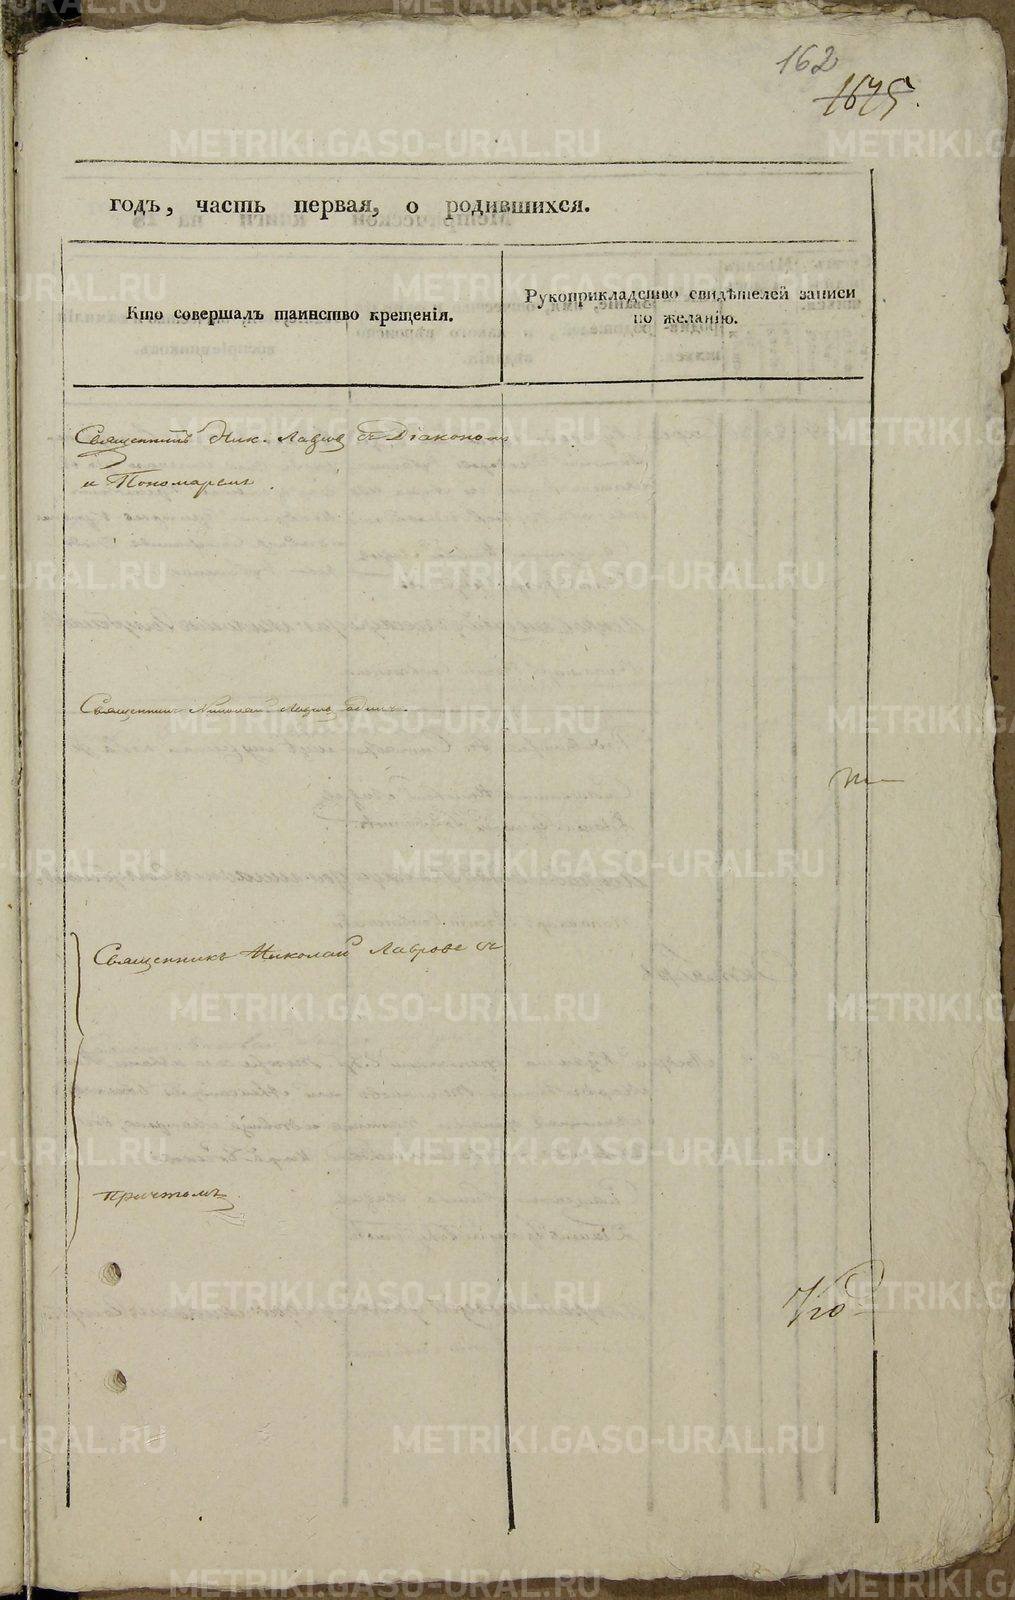 162
1675.
годъ, часть первая, о родившихся.
Кто совершалъ таинство крещенія.
Рукоприкладство свидѣтелей записи
по желанію.
Священникъ Ник. Лавров съ Діакономъ
и Пономаремъ
Священникъ Николай Лавровъ
Священникъ Николай Лавровъ съ
Причтомъ
METRIKI.GASO-URAL.RU